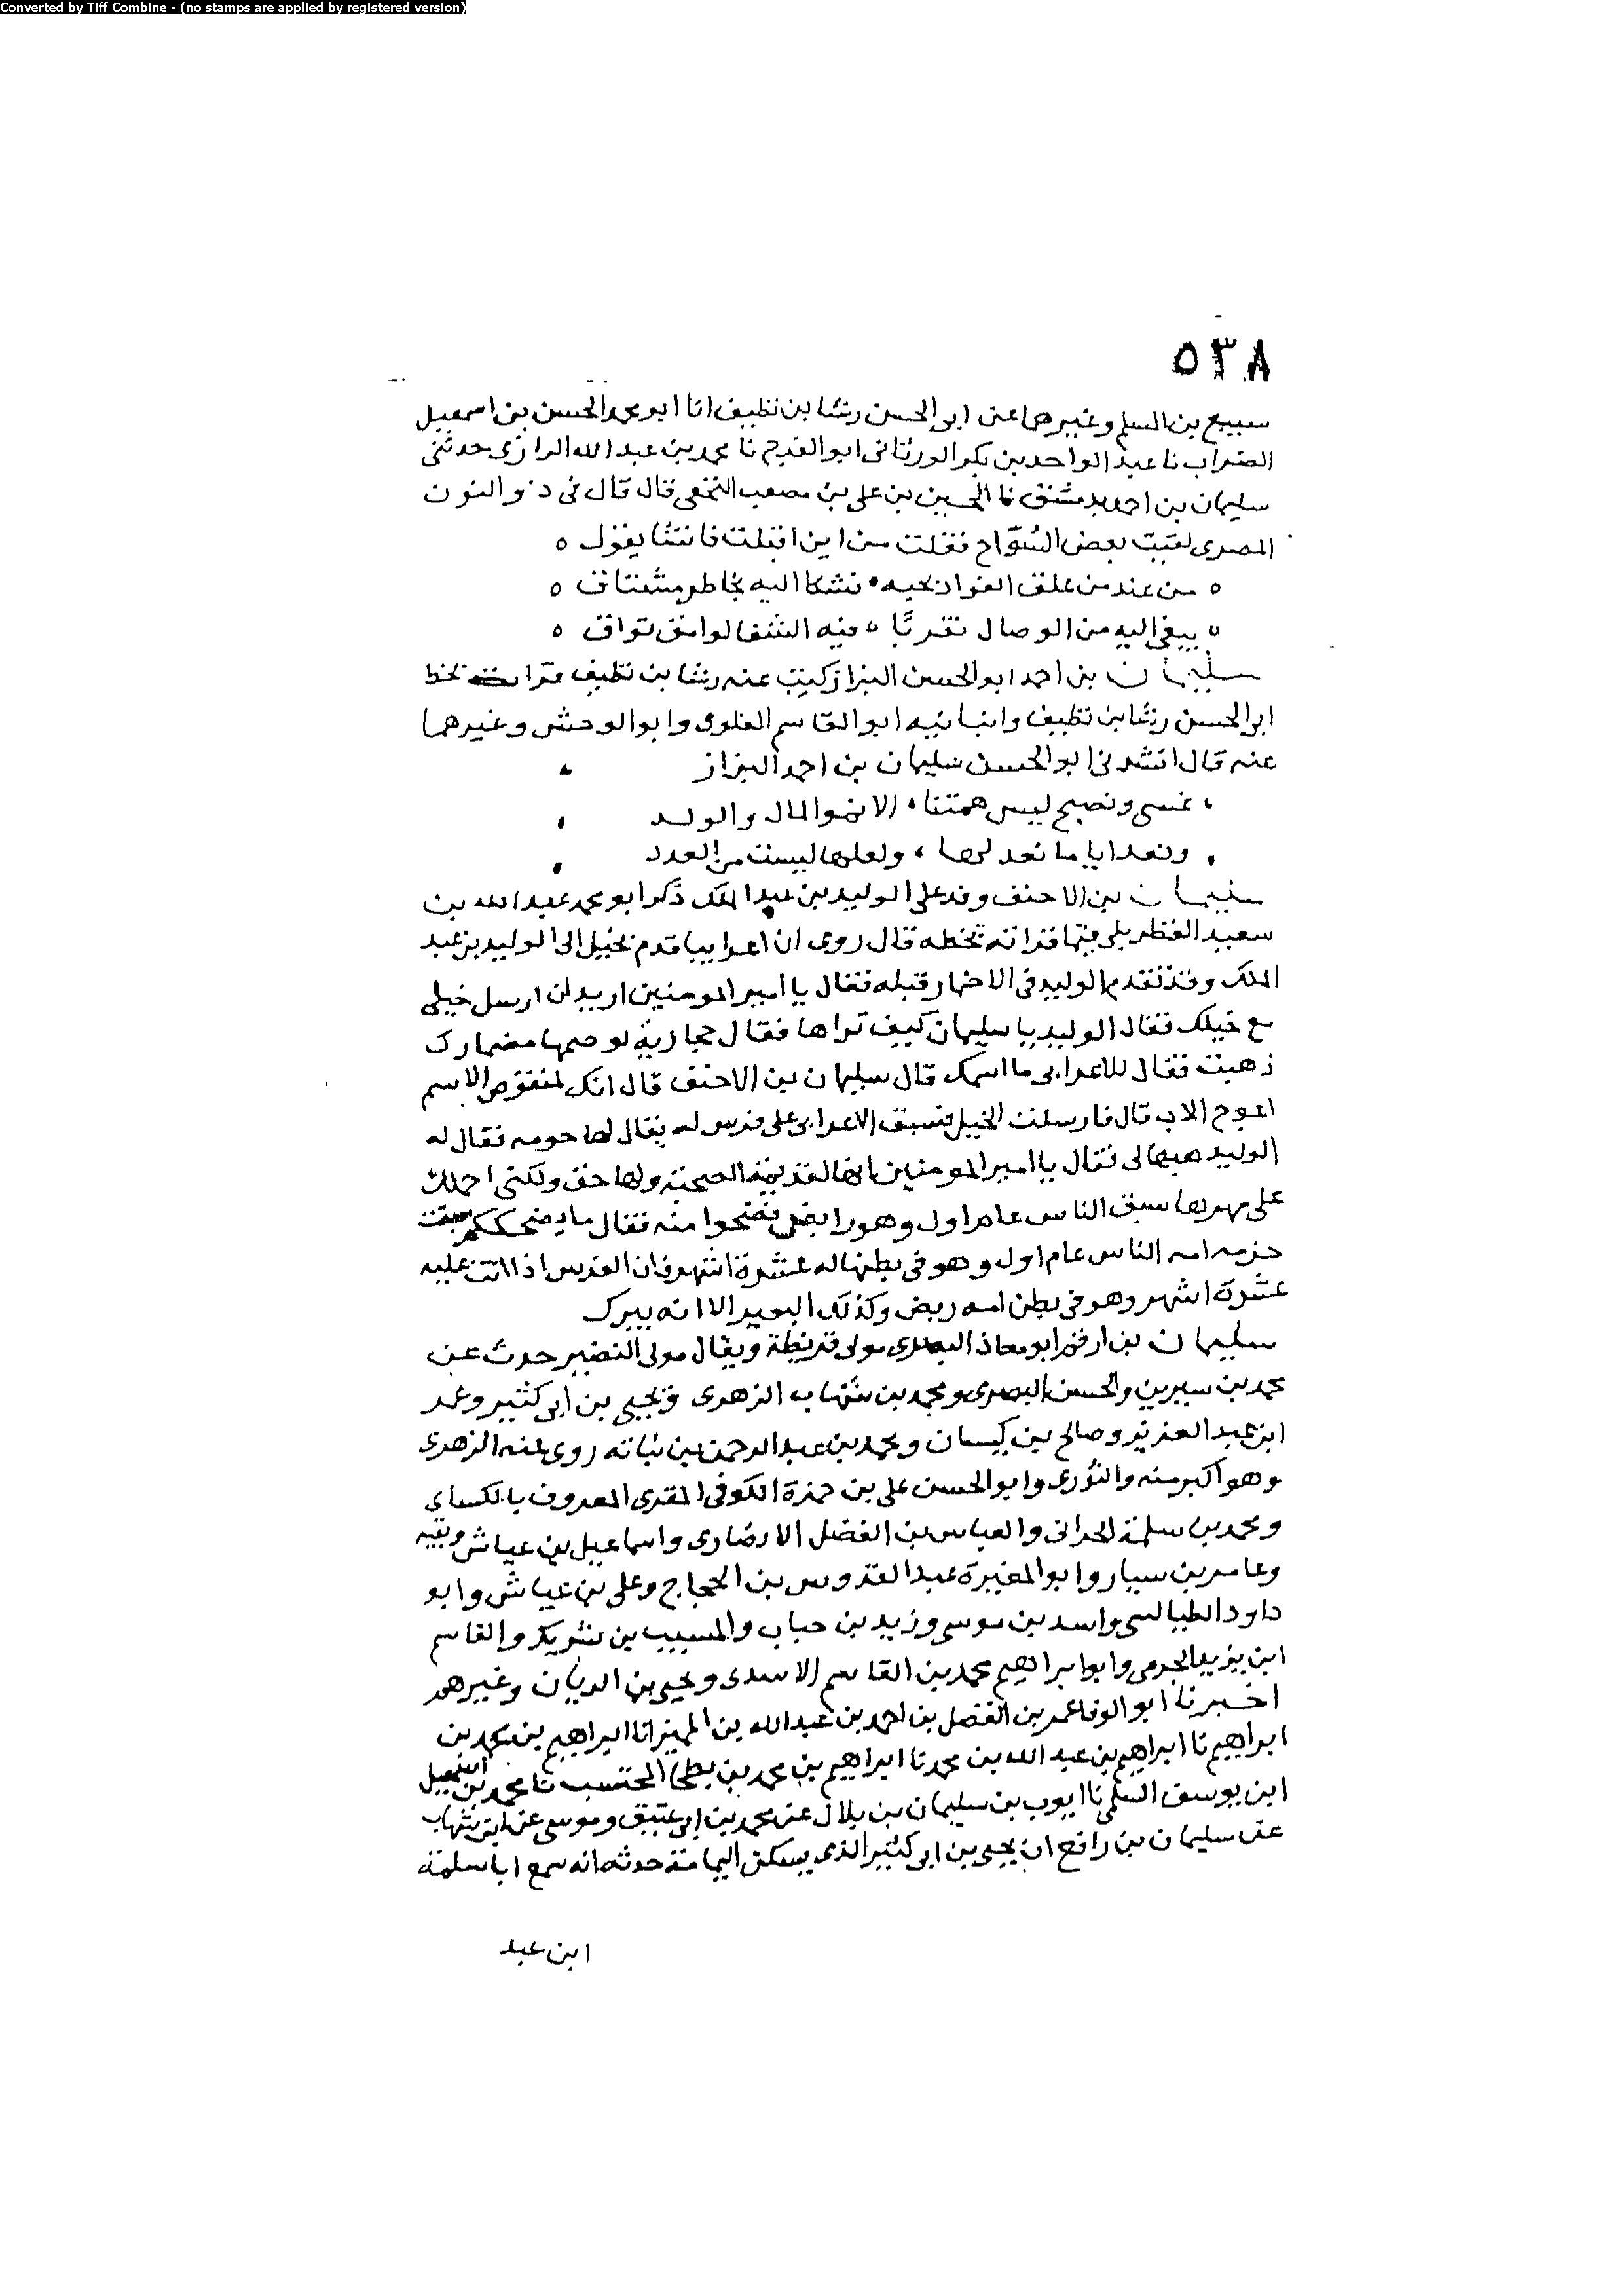 Converted by Tiff Combine - (no stamps are applied by registered version)
٥٣٨
سبيع بن المسلم وغيرهما عن ابى الحسن رشا بن نظيف انا ابو محمد الحسن بن اسمعيل
الضراب نا عبد الواحد بن بكر الورثانى ابو الفرج نا محمد بن عبد الله الرازى حدثنى
سليمان بن احمد بدمشق نا الحسين بن على بن مصعب النخعى قال قال لى ذو النون
المصرى لقيت بعض السُوّاح فقلت من اين اقبلت فانشا يقول ٥
٥ من عند من علق الفواد بحبه • فشكا اليه بخاطر مشتاق ٥
٥ يبغى اليه من الوصال تقربًا ٥ فيه الشفا لوامق تواق ٥
سليمان بن احمد ابو الحسن البزاز كتب عنه رشا بن نظيف قرات بخط
ابى الحسن رشا بن نظيف وانبانيه ابو القاسم العلوى وابو الوحش وغيرهما
عنه قال انشدنى ابو الحسن سليمان بن احمد البزاز
نمسى ونصبح ليس همتنا ، الا نمو المال والولد
ونعد اياما نعد لها ، ولعلها ليست من العدد
سليمان بن الاحنف وفد على الوليد بن عبد الملك ذكر ابو محمد عبد الله بن
سعيد القطربلى فيما قراته بخطه قال روى ان اعرابيا قدم بخيل الى الوليد بن عبد
الملك وقد تقدم الوليد فى الاضمار قبله فقال يا امير المومنين اريد ان ارسل خيلى
مع خيلك فقال الوليد يا سليمان كيف تراها فقال حجازية لو ضمها مضمارك
ذهبت فقال للاعرابى ما اسمك قال سليمان بن الاحنف قال انك لمنقوص الاسم
اعوج الاب قال فارسلت الخيل فسبق الاعرابى على فرس له يقال لها حومه فقال له
الوليد هبها لى فقال يا امير المومنين انها لقديمة الصحبة ولها حق ولكنى احملك
على مهر لها سبق الناس عاما اول وهو رابض فضحكوا منه فقال ما يضحككم سبقت
حزمه امه الناس عام اول وهو فى بطنها له عشرة اشهر فان الفرس اذا اتت عليه
عشرة اشهر وهو فى بطن امه ربض وكذلك البعير الا انه يبرك
سليمان بن ارقم ابو معاذ البصرى مولى قريظة ويقال مولى النضير حدث عن
محمد بن سيرين والحسن البصرى ومحمد بن شهاب الزهرى ويحيى بن ابى كثير وعمر
ابن عبد العزيز وصالح بن كيسان ومحمد بن عبد الرحمن بن نباته روى عنه الزهرى
وهو اكبر منه والثورى وابو الحسن على بن حمزة الكوفى المقرى المعروف بالكساى
ومحمد بن سلمة الحرانى والعباس بن الفضل الانصارى واسماعيل بن عياش وبقيه
وعامر بن سيار وابو المغيرة عبد القدوس بن الحجاج وعلى بن عياش وابو
داود الطيالسى واسد بن موسى وزيد بن حباب والمسيب بن شريك والقاسم
ابن يزيد الجرمى وابو ابراهيم محمد بن القاسم الاسدى ويحيى بن الريان وغيرهم
اخبرنا ابو الوفا عمر بن الفضل بن احمد بن عبد الله بن المميز انا ابراهيم بن محمد بن
ابراهيم نا ابراهيم بن عبد الله بن محمد نا ابراهيم بن محمد بن بطحا المحتسب نا محمد بن اسمعيل
ابن يوسف السلمى نا ايوب بن سليمان بن بلال عن محمد بن ابى عتيق وموسى عن ابن شهاب
عن سليمان بن راقع ان يحيى بن ابى كثير الذى يسكن اليمامة حدثه انه سمع ابا سلمة
ابن عبد